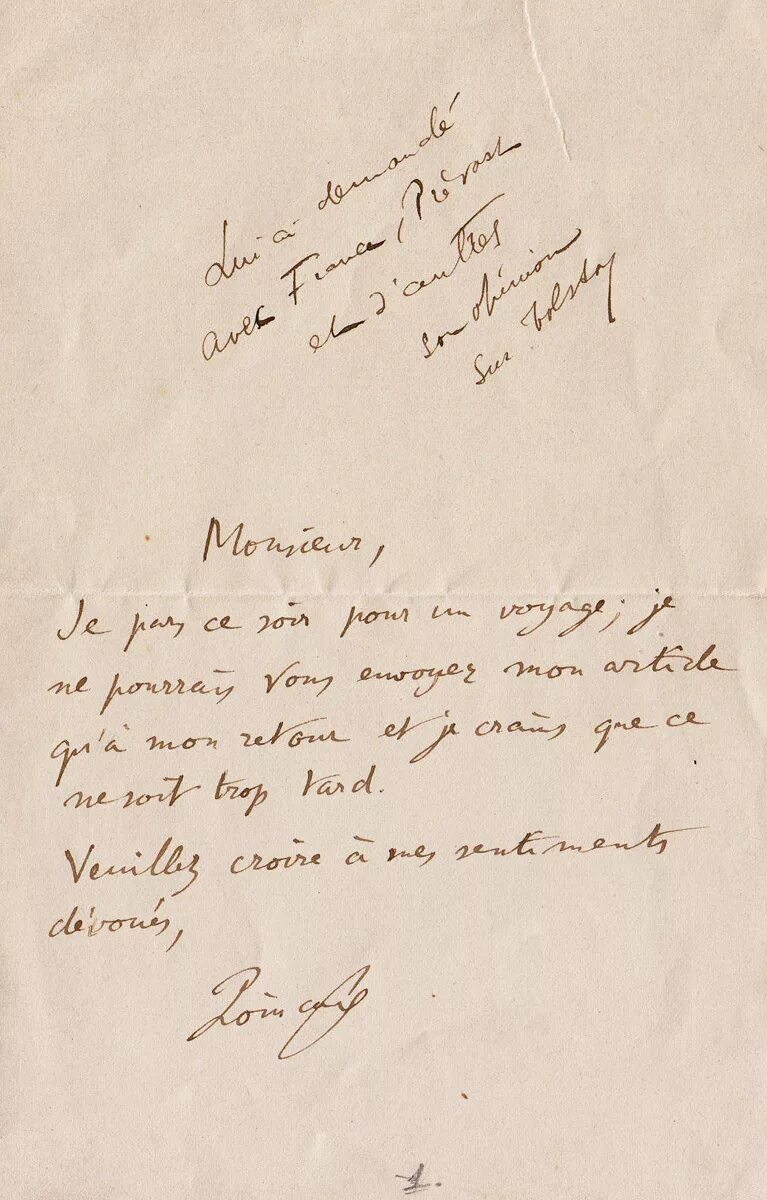 Lui ai demandé
avec France, Prévost
et d'autres
son opinion
sur Tolstoy
Monsieur,
Je pars ce soir pour un voyage; je
ne pourrais vous envoyez mon article
qu'à mon retour et je crains que ce
ne soit trop tard.
Veuillez croire à mes sentiments
dévoués,
Poincaré
1.